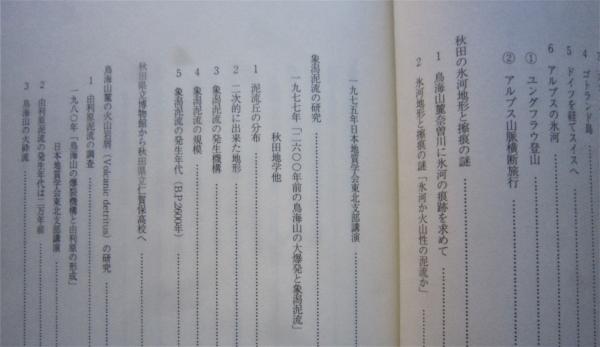 4 ゴトランド島
5 ドイツを経てスイスへ
6 アルプスの氷河
① ユングフラウ登山
② アルプス山脈横断旅行
秋田の氷河地形と擦痕の謎
1 鳥海山麓奈曽川に氷河の痕跡を求めて
2 氷河地形と擦痕の謎「氷河か火山性の泥流か」
一九七五年日本地質学会東北支部講演
象潟泥流の研究
一九七七年「二六〇〇年前の鳥海山の大爆発と象潟泥流」
秋田地学他
1 泥流丘の分布
2 二次的に出来た地形
3 象潟泥流の発生機構
4 象潟泥流の規模
5 象潟泥流の発生年代(B.P.2600年)
秋田県立博物館から秋田県立仁賀保高校へ
鳥海山麓の火山岩屑(Volcanic detritus)の研究
1 由利原泥流の調査
一九八〇年「鳥海山の爆裂機構と由利原の形成」
日本地質学会東北支部講演
2 由利原泥流の発生年代は二万年前
3 鳥海山の火砕流